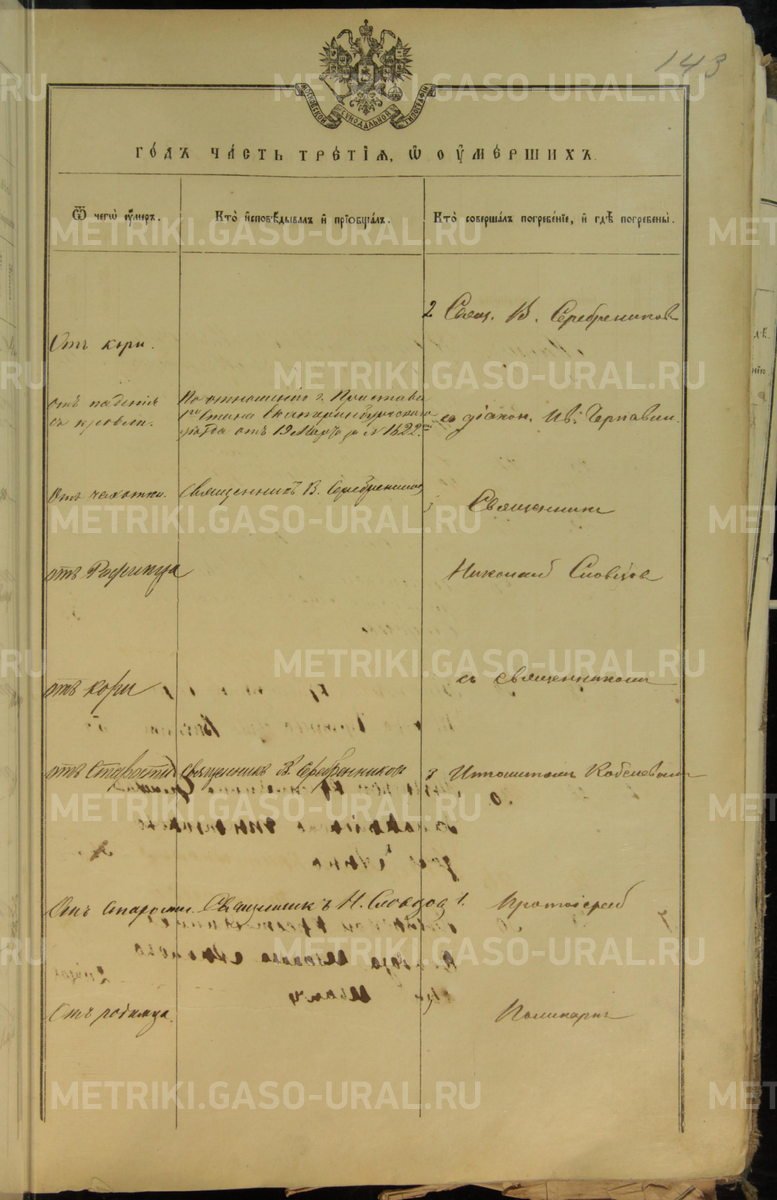 143
МОСКОВСКОЙ СѴНОДАЛЬНОЙ ТИПОГРАФІИ
ГОДЪ ЧАСТЬ ТРЕТІЯ, Ѡ ОУМЕРШИХЪ.
Ѿ чегѡ оумеръ.
Кто исповѣдывалъ и пріобщалъ.
Кто совершалъ погребеніе, и гдѣ погребены.
2 Свящ. В. Серебренников
Отъ кори.
отъ паденія
съ кровли.
По отношенію г. Пристава
1го стана Екатеринбургскаго
уѣзда отъ 19 Марта за № 1622
съ діакон. Ив. Чернавин.
Отъ чахотки.
Священникъ В. Серебренников
Священники
отъ Родимца
Николай Словцов
отъ кори
съ священником
отъ Старости
Священникъ В. Серебренниковъ
Ипполитом Кобелевым
Отъ старости.
Священникъ Н. Словцов
1. Протоіерей
Отъ родимца.
Поликарп
METRIKI.GASO-URAL.RU